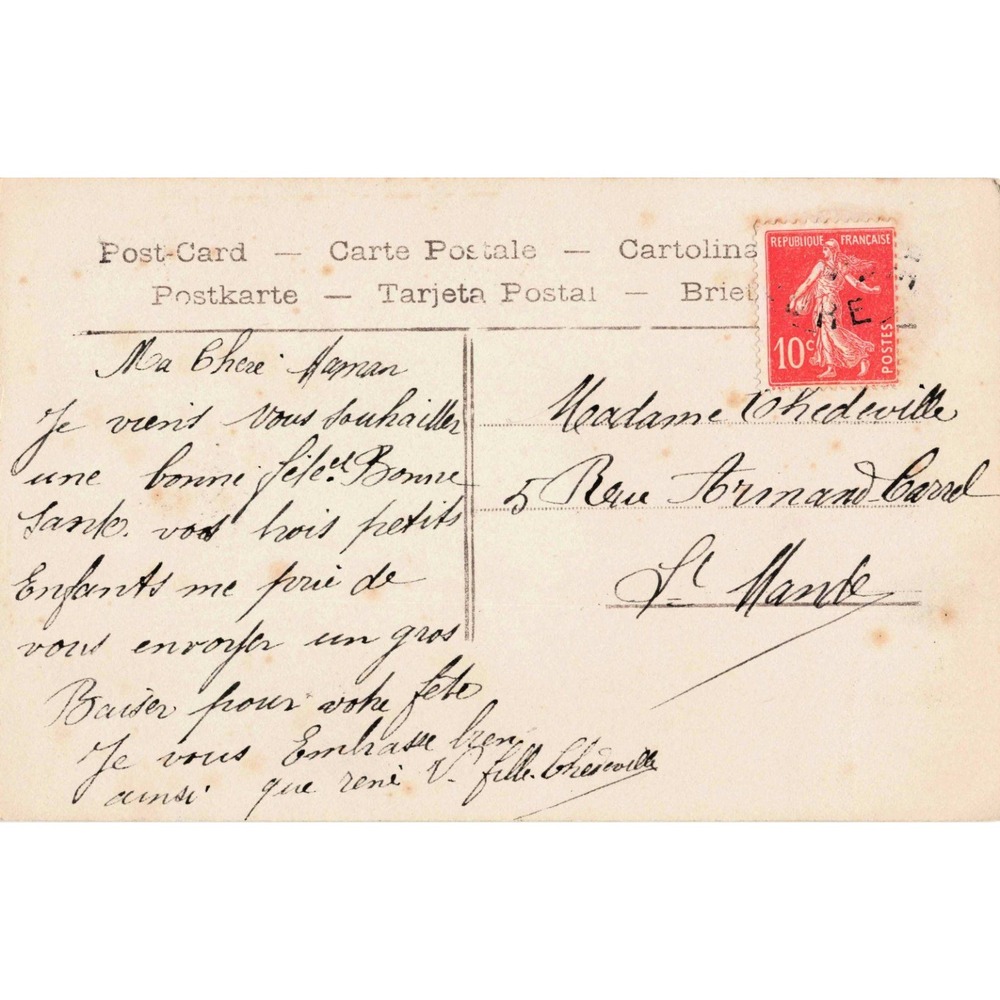 Post-Card — Carte Postale — Cartolina
Postkarte — Tarjeta Postal — Brief
REPUBLIQUE FRANÇAISE
10c
POSTES
RE
Ma Chere Maman
Je viens vous souhaiter
une bonne fête et Bonne
Sante. vos trois petits
Enfants me prie de
vous envoyer un gros
Baiser pour votre fête
Je vous Embrasse bien
ainsi que rené V. fille Chedeville
Madame Chedeville
5 Rue Armand Carrel
St Mande